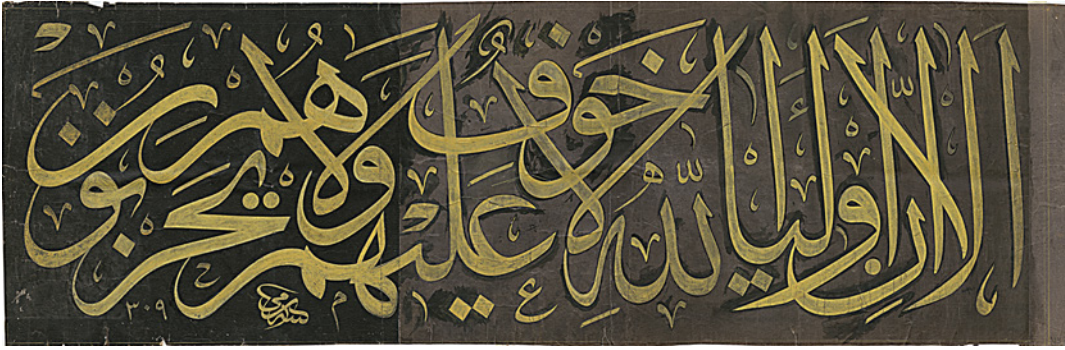 الا ان اولياء الله لا خوف عليهم ولا هم يحزنون
سامي
٣٠٩